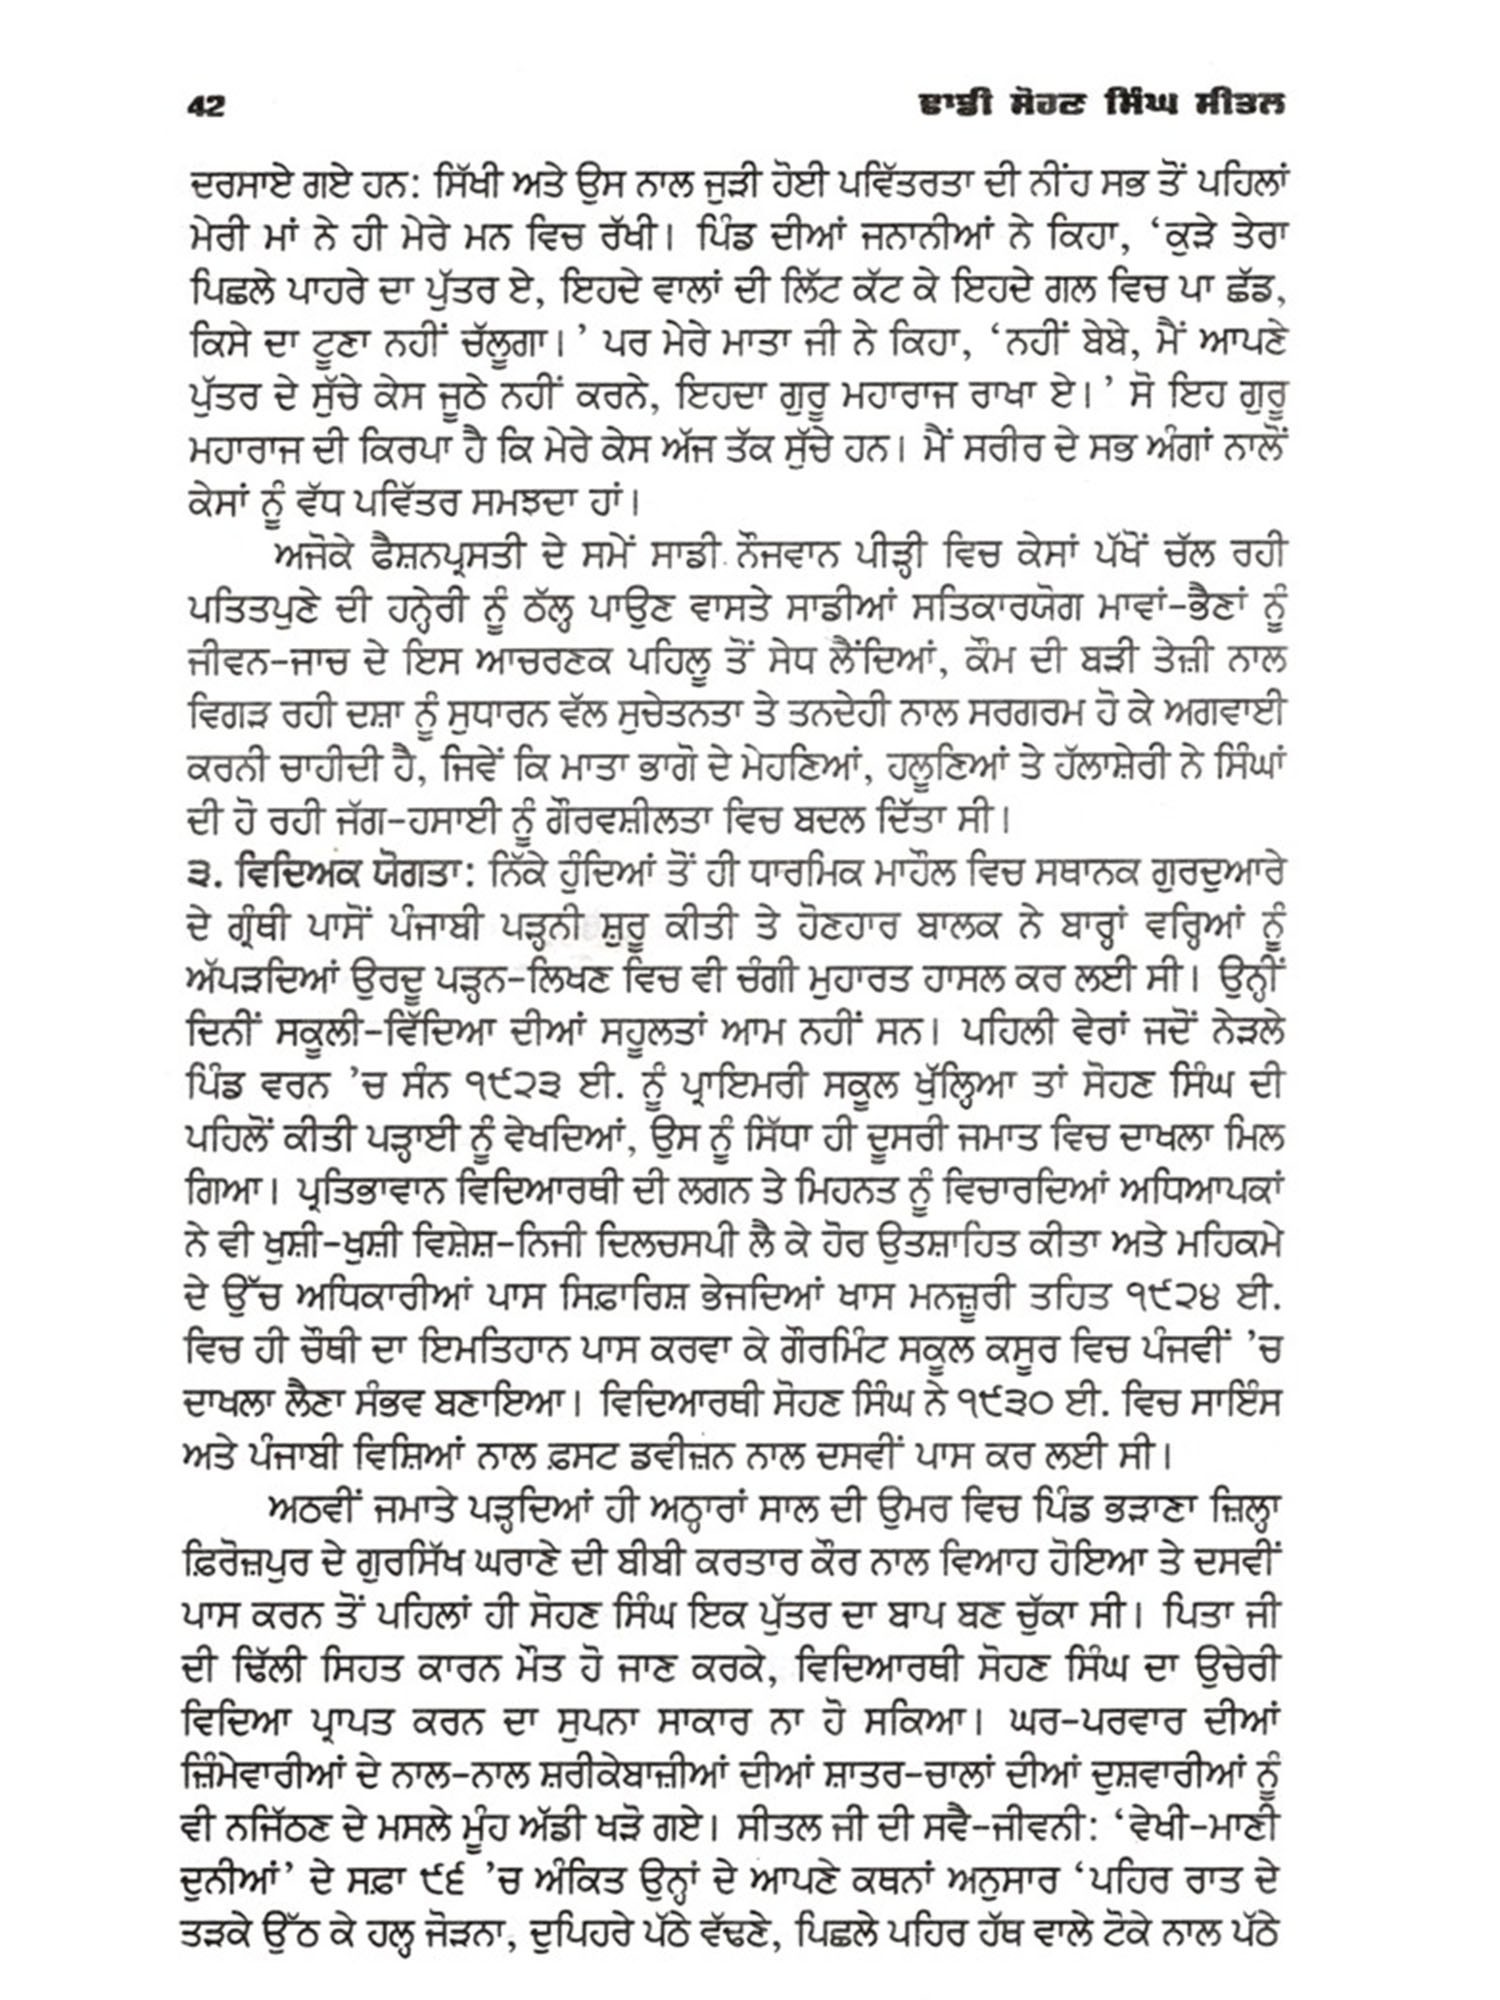 42 ਢਾਡੀ ਸੋਹਣ ਸਿੰਘ ਸੀਤਲ
ਦਰਸਾਏ ਗਏ ਹਨ: ਸਿੱਖੀ ਅਤੇ ਉਸ ਨਾਲ ਜੁੜੀ ਹੋਈ ਪਵਿੱਤਰਤਾ ਦੀ ਨੀਂਹ ਸਭ ਤੋਂ ਪਹਿਲਾਂ
ਮੇਰੀ ਮਾਂ ਨੇ ਹੀ ਮੇਰੇ ਮਨ ਵਿਚ ਰੱਖੀ। ਪਿੰਡ ਦੀਆਂ ਜਨਾਨੀਆਂ ਨੇ ਕਿਹਾ, ‘ਕੁੜੇ ਤੇਰਾ
ਪਿਛਲੇ ਪਾਹਰੇ ਦਾ ਪੁੱਤਰ ਏ, ਇਹਦੇ ਵਾਲਾਂ ਦੀ ਲਿੱਟ ਕੱਟ ਕੇ ਇਹਦੇ ਗਲ ਵਿਚ ਪਾ ਛੱਡ,
ਕਿਸੇ ਦਾ ਟੂਣਾ ਨਹੀਂ ਚੱਲੂਗਾ।’ ਪਰ ਮੇਰੇ ਮਾਤਾ ਜੀ ਨੇ ਕਿਹਾ, ‘ਨਹੀਂ ਬੇਬੇ, ਮੈਂ ਆਪਣੇ
ਪੁੱਤਰ ਦੇ ਸੁੱਚੇ ਕੇਸ ਜੂਠੇ ਨਹੀਂ ਕਰਨੇ, ਇਹਦਾ ਗੁਰੂ ਮਹਾਰਾਜ ਰਾਖਾ ਏ।’ ਸੋ ਇਹ ਗੁਰੂ
ਮਹਾਰਾਜ ਦੀ ਕਿਰਪਾ ਹੈ ਕਿ ਮੇਰੇ ਕੇਸ ਅੱਜ ਤੱਕ ਸੁੱਚੇ ਹਨ। ਮੈਂ ਸਰੀਰ ਦੇ ਸਭ ਅੰਗਾਂ ਨਾਲੋਂ
ਕੇਸਾਂ ਨੂੰ ਵੱਧ ਪਵਿੱਤਰ ਸਮਝਦਾ ਹਾਂ।
ਅਜੋਕੇ ਫੈਸ਼ਨਪ੍ਰਸਤੀ ਦੇ ਸਮੇਂ ਸਾਡੀ ਨੌਜਵਾਨ ਪੀੜ੍ਹੀ ਵਿਚ ਕੇਸਾਂ ਪੱਖੋਂ ਚੱਲ ਰਹੀ
ਪਤਿਤਪੁਣੇ ਦੀ ਹਨ੍ਹੇਰੀ ਨੂੰ ਠੱਲ੍ਹ ਪਾਉਣ ਵਾਸਤੇ ਸਾਡੀਆਂ ਸਤਿਕਾਰਯੋਗ ਮਾਵਾਂ-ਭੈਣਾਂ ਨੂੰ
ਜੀਵਨ-ਜਾਚ ਦੇ ਇਸ ਆਚਰਣਕ ਪਹਿਲੂ ਤੋਂ ਸੇਧ ਲੈਂਦਿਆਂ, ਕੌਮ ਦੀ ਬੜੀ ਤੇਜ਼ੀ ਨਾਲ
ਵਿਗੜ ਰਹੀ ਦਸ਼ਾ ਨੂੰ ਸੁਧਾਰਨ ਵੱਲ ਸੁਚੇਤਨਤਾ ਤੇ ਤਨਦੇਹੀ ਨਾਲ ਸਰਗਰਮ ਹੋ ਕੇ ਅਗਵਾਈ
ਕਰਨੀ ਚਾਹੀਦੀ ਹੈ, ਜਿਵੇਂ ਕਿ ਮਾਤਾ ਭਾਗੋ ਦੇ ਮੇਹਣਿਆਂ, ਹਲੂਣਿਆਂ ਤੇ ਹੱਲਾਸ਼ੇਰੀ ਨੇ ਸਿੰਘਾਂ
ਦੀ ਹੋ ਰਹੀ ਜੱਗ-ਹਸਾਈ ਨੂੰ ਗੌਰਵਸ਼ੀਲਤਾ ਵਿਚ ਬਦਲ ਦਿੱਤਾ ਸੀ।
੩. ਵਿਦਿਅਕ ਯੋਗਤਾ: ਨਿੱਕੇ ਹੁੰਦਿਆਂ ਤੋਂ ਹੀ ਧਾਰਮਿਕ ਮਾਹੌਲ ਵਿਚ ਸਥਾਨਕ ਗੁਰਦੁਆਰੇ
ਦੇ ਗ੍ਰੰਥੀ ਪਾਸੋਂ ਪੰਜਾਬੀ ਪੜ੍ਹਨੀ ਸ਼ੁਰੂ ਕੀਤੀ ਤੇ ਹੋਣਹਾਰ ਬਾਲਕ ਨੇ ਬਾਰ੍ਹਾਂ ਵਰ੍ਹਿਆਂ ਨੂੰ
ਅੱਪੜਦਿਆਂ ਉਰਦੂ ਪੜ੍ਹਨ-ਲਿਖਣ ਵਿਚ ਵੀ ਚੰਗੀ ਮੁਹਾਰਤ ਹਾਸਲ ਕਰ ਲਈ ਸੀ। ਉਨ੍ਹੀਂ
ਦਿਨੀਂ ਸਕੂਲੀ-ਵਿੱਦਿਆ ਦੀਆਂ ਸਹੂਲਤਾਂ ਆਮ ਨਹੀਂ ਸਨ। ਪਹਿਲੀ ਵੇਰਾਂ ਜਦੋਂ ਨੇੜਲੇ
ਪਿੰਡ ਵਰਨ ’ਚ ਸੰਨ ੧੯੨੩ ਈ. ਨੂੰ ਪ੍ਰਾਇਮਰੀ ਸਕੂਲ ਖੁੱਲ੍ਹਿਆ ਤਾਂ ਸੋਹਣ ਸਿੰਘ ਦੀ
ਪਹਿਲੋਂ ਕੀਤੀ ਪੜ੍ਹਾਈ ਨੂੰ ਵੇਖਦਿਆਂ, ਉਸ ਨੂੰ ਸਿੱਧਾ ਹੀ ਦੂਸਰੀ ਜਮਾਤ ਵਿਚ ਦਾਖਲਾ ਮਿਲ
ਗਿਆ। ਪ੍ਰਤਿਭਾਵਾਨ ਵਿਦਿਆਰਥੀ ਦੀ ਲਗਨ ਤੇ ਮਿਹਨਤ ਨੂੰ ਵਿਚਾਰਦਿਆਂ ਅਧਿਆਪਕਾਂ
ਨੇ ਵੀ ਖੁਸ਼ੀ-ਖੁਸ਼ੀ ਵਿਸ਼ੇਸ਼-ਨਿਜੀ ਦਿਲਚਸਪੀ ਲੈ ਕੇ ਹੋਰ ਉਤਸ਼ਾਹਿਤ ਕੀਤਾ ਅਤੇ ਮਹਿਕਮੇ
ਦੇ ਉੱਚ ਅਧਿਕਾਰੀਆਂ ਪਾਸ ਸਿਫ਼ਾਰਿਸ਼ ਭੇਜਦਿਆਂ ਖਾਸ ਮਨਜ਼ੂਰੀ ਤਹਿਤ ੧੯੨੪ ਈ.
ਵਿਚ ਹੀ ਚੌਥੀ ਦਾ ਇਮਤਿਹਾਨ ਪਾਸ ਕਰਵਾ ਕੇ ਗੌਰਮਿੰਟ ਸਕੂਲ ਕਸੂਰ ਵਿਚ ਪੰਜਵੀਂ ’ਚ
ਦਾਖਲਾ ਲੈਣਾ ਸੰਭਵ ਬਣਾਇਆ। ਵਿਦਿਆਰਥੀ ਸੋਹਣ ਸਿੰਘ ਨੇ ੧੯੩੦ ਈ. ਵਿਚ ਸਾਇੰਸ
ਅਤੇ ਪੰਜਾਬੀ ਵਿਸ਼ਿਆਂ ਨਾਲ ਫ਼ਸਟ ਡਵੀਜ਼ਨ ਨਾਲ ਦਸਵੀਂ ਪਾਸ ਕਰ ਲਈ ਸੀ।
ਅਠਵੀਂ ਜਮਾਤੇ ਪੜ੍ਹਦਿਆਂ ਹੀ ਅਠ੍ਹਾਰਾਂ ਸਾਲ ਦੀ ਉਮਰ ਵਿਚ ਪਿੰਡ ਭੜਾਣਾ ਜ਼ਿਲ੍ਹਾ
ਫ਼ਿਰੋਜ਼ਪੁਰ ਦੇ ਗੁਰਸਿੱਖ ਘਰਾਣੇ ਦੀ ਬੀਬੀ ਕਰਤਾਰ ਕੌਰ ਨਾਲ ਵਿਆਹ ਹੋਇਆ ਤੇ ਦਸਵੀਂ
ਪਾਸ ਕਰਨ ਤੋਂ ਪਹਿਲਾਂ ਹੀ ਸੋਹਣ ਸਿੰਘ ਇਕ ਪੁੱਤਰ ਦਾ ਬਾਪ ਬਣ ਚੁੱਕਾ ਸੀ। ਪਿਤਾ ਜੀ
ਦੀ ਢਿੱਲੀ ਸਿਹਤ ਕਾਰਨ ਮੌਤ ਹੋ ਜਾਣ ਕਰਕੇ, ਵਿਦਿਆਰਥੀ ਸੋਹਣ ਸਿੰਘ ਦਾ ਉਚੇਰੀ
ਵਿਦਿਆ ਪ੍ਰਾਪਤ ਕਰਨ ਦਾ ਸੁਪਨਾ ਸਾਕਾਰ ਨਾ ਹੋ ਸਕਿਆ। ਘਰ-ਪਰਵਾਰ ਦੀਆਂ
ਜ਼ਿੰਮੇਵਾਰੀਆਂ ਦੇ ਨਾਲ-ਨਾਲ ਸ਼ਰੀਕੇਬਾਜ਼ੀਆਂ ਦੀਆਂ ਸ਼ਾਤਰ-ਚਾਲਾਂ ਦੀਆਂ ਦੁਸ਼ਵਾਰੀਆਂ ਨੂੰ
ਵੀ ਨਜਿੱਠਣ ਦੇ ਮਸਲੇ ਮੂੰਹ ਅੱਡੀ ਖੜੋ ਗਏ। ਸੀਤਲ ਜੀ ਦੀ ਸਵੈ-ਜੀਵਨੀ: ‘ਵੇਖੀ-ਮਾਣੀ
ਦੁਨੀਆਂ’ ਦੇ ਸਫ਼ਾ ੯੬ ’ਚ ਅੰਕਿਤ ਉਨ੍ਹਾਂ ਦੇ ਆਪਣੇ ਕਥਨਾਂ ਅਨੁਸਾਰ ‘ਪਹਿਰ ਰਾਤ ਦੇ
ਤੜਕੇ ਉੱਠ ਕੇ ਹਲ੍ਹ ਜੋੜਨਾ, ਦੁਪਿਹਰੇ ਪੱਠੇ ਵੱਢਣੇ, ਪਿਛਲੇ ਪਹਿਰ ਹੱਥ ਵਾਲੇ ਟੋਕੇ ਨਾਲ ਪੱਠੇ